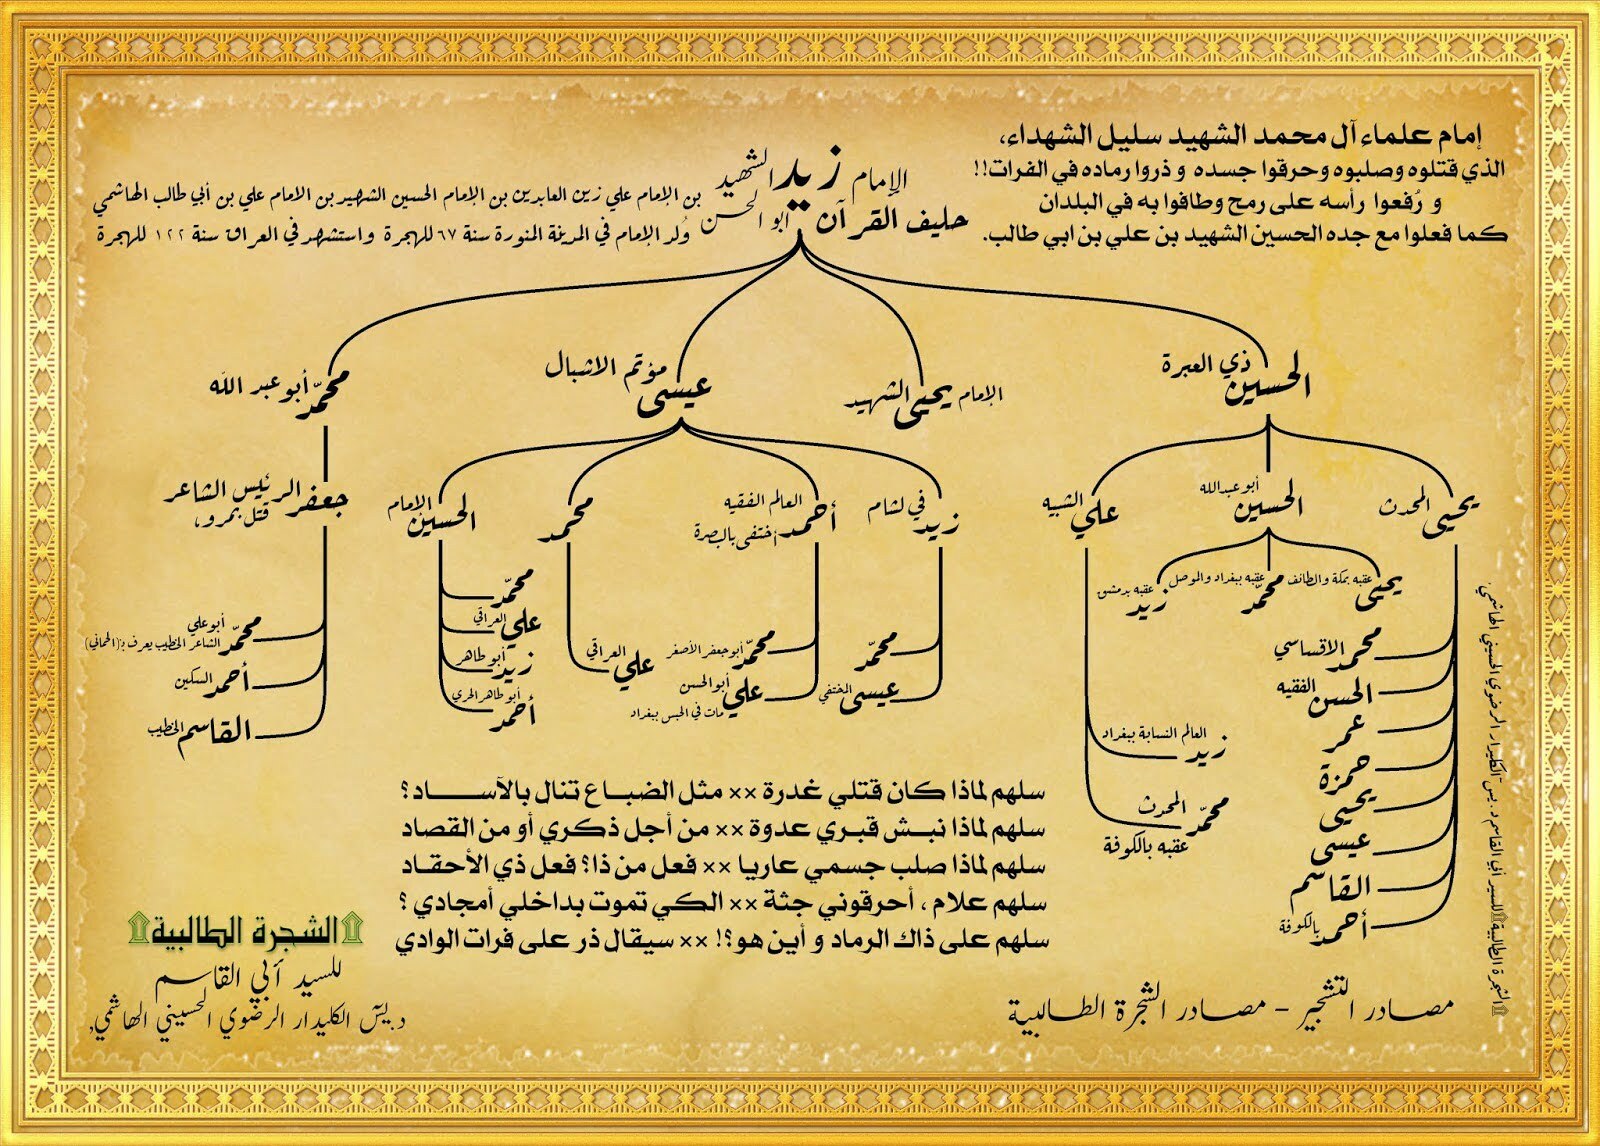 إمام علماء آل محمد الشهيد سليل الشهداء،
الذي قتلوه وصلبوه وحرقوا جسده وذروا رماده في الفرات!!
و رُفعوا رأسه على رمح وطافوا به في البلدان
كما فعلوا مع جده الحسين الشهيد بن علي بن ابي طالب.
الإمام زيد الشهيد
حليف القرآن ابو الحسن
بن الإمام علي زين العابدين بن الإمام الحسين الشهيد بن الامام علي بن أبي طالب الهاشمي
وُلد الإمام في المدينة المنورة سنة ٦٧ للهجرة واستشهد في العراق سنة ١٢٢ للهجرة
الحسين ذي العبرة
الإمام يحيى الشهيد
عيسى مؤتم الاشبال
محمّد أبو عبد الله
يحيى المحدث
الحسين أبو عبدالله
علي الشبيه
زيد في لشام
أحمد العالم الفقيه
أختفى بالبصرة
محمد
الحسين الإمام
جعفر الرئيس الشاعر
قتل بمرو،
يحيى عقبه بمكة والطائف
محمّد عقبه ببغداد والموصل
زيد عقبه بدمشق
محمد الاقساسي
الحسن الفقيه
عمر
حمزة
يحيى
عيسى
القاسم
أحمد بالكوفة
زيد العالم النسابة ببغداد
محمّد المحدث
عقبه بالكوفة
محمّد
عيسى المختفي
محمّد أبو جعفر الأصغر
علي أبو الحسن
مات في الحبس ببغداد
علي العراقي
محمّد
علي العراقي
زيد أبو طاهر
أحمد أبو طاهر الحري
محمّد أبو علي
الشاعر الخطيب يعرف بـ(الحماني)
أحمد السكين
القاسم الخطيب
سلهم لماذا كان قتلي غدرة ×× مثل الضباع تنال بالآساد؟
سلهم لماذا نبش قبري عدوة ×× من أجل ذكري أو من القصاد
سلهم لماذا صلب جسمي عاريا ×× فعل من ذا؟ فعل ذي الأحقاد
سلهم علام، أحرقوني جثة ×× الكي تموت بداخلي أمجادي؟
سلهم على ذاك الرماد و أين هو؟! ×× سيقال ذر على فرات الوادي
الشجرة الطالبية
للسيد أبي القاسم
د.يسّ الكليدار الرضوي الحسيني الهاشمي,
مصادر التشجير - مصادر الشجرة الطالبية
الشجرة الطالبية للسيد أبي القاسم د.يس الكليدار الرضوي الحسيني الهاشمي